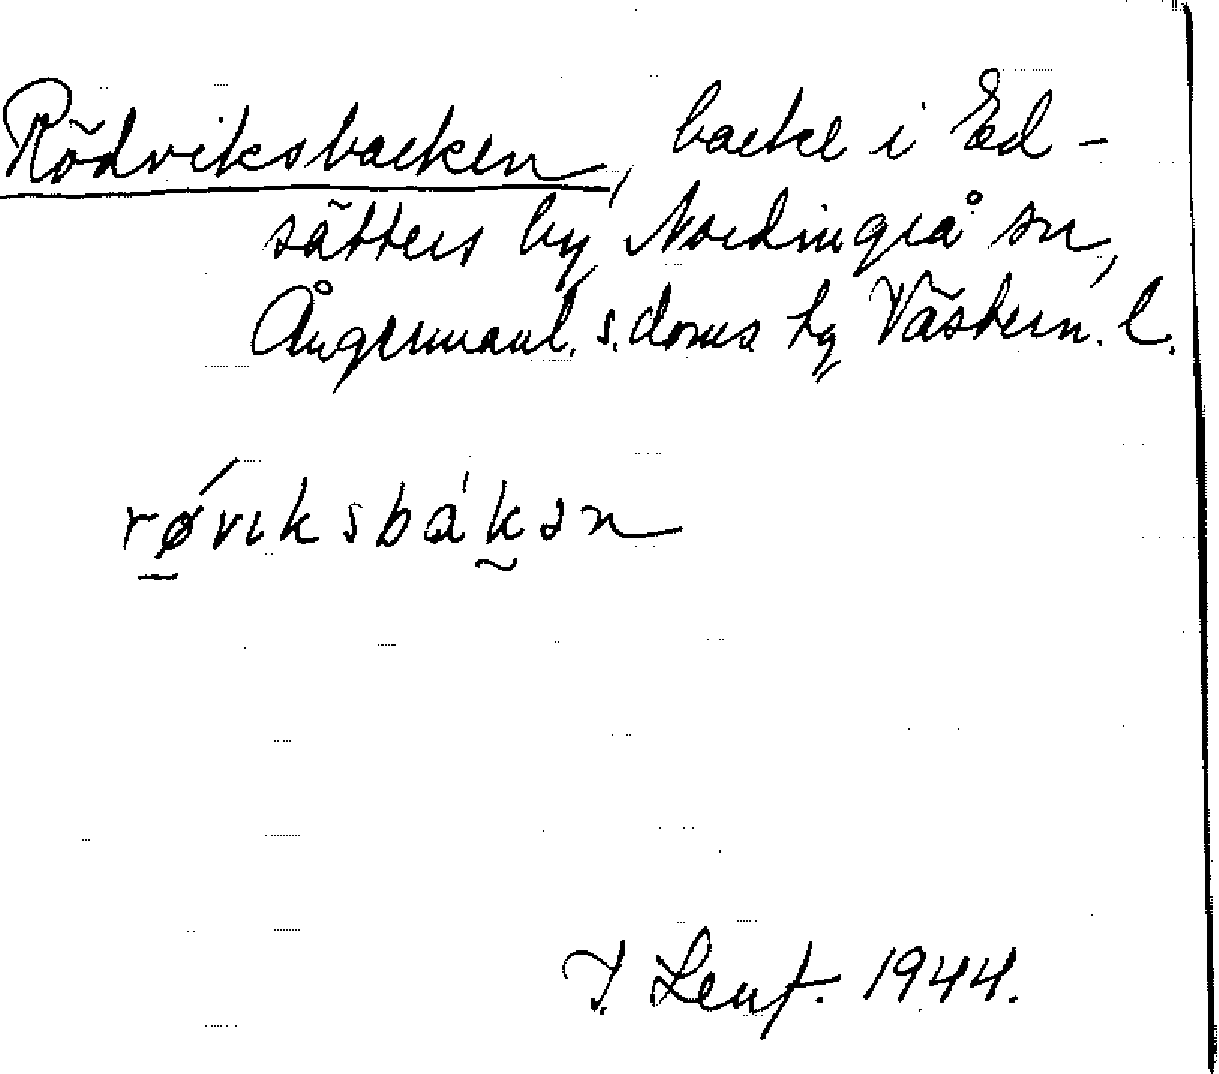 Rödviksbacken, backe i Ed-
sätters by Nordingrå sn,
Ångermanl. s. doms. hg Västern. l.
røviksbakən
I. Lenf. 1944.